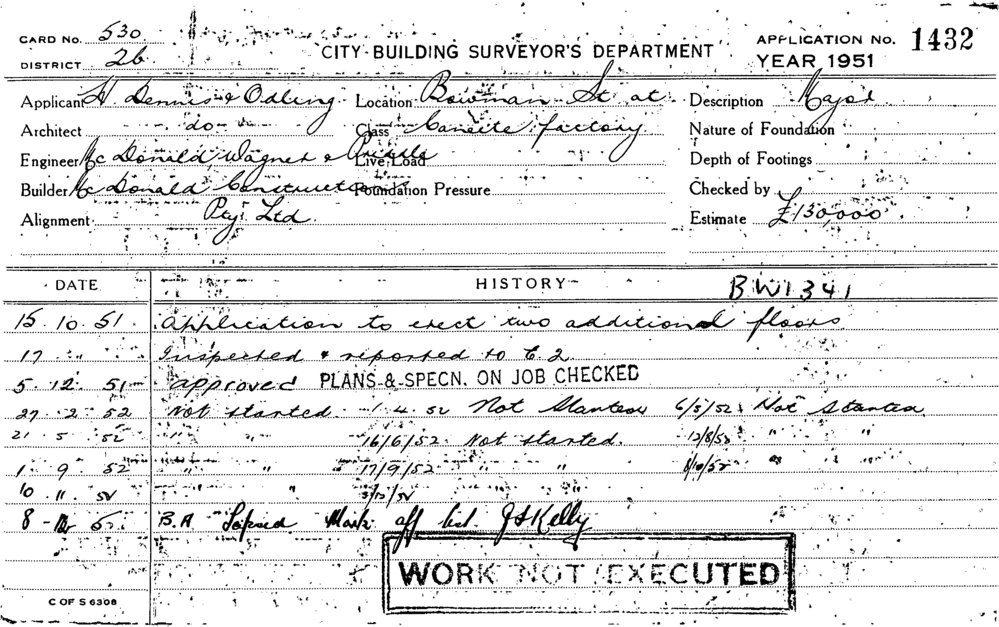 CARD No. 530
DISTRICT 26
CITY BUILDING SURVEYOR'S DEPARTMENT
APPLICATION No. 1432
YEAR 1951
Applicant H Dennis & Odling Location Bowman St at Description Major
Architect do Class Caneite factory Nature of Foundation
Engineer Mc Donald, Wagner & Priddle Live Load Depth of Footings
Builder Mc Donald Construction Foundation Pressure Checked by
Alignment Pty. Ltd. Estimate £130,000
DATE HISTORY BW1341
15.10.51 Application to erect two additional floors
17 " " Inspected & reported to C.2
5.12.51 approved PLANS & SPECN. ON JOB CHECKED
27.2.52 Not started 1.4.52 Not Started 6/5/52 Not Started
21.5.52 " " 16/6/52 Not started. 12/8/52 " "
1.9.52 " " 17/9/52 " " 8/10/52 " "
10.11.52 " " 3/12/52
8 B.A Lapsed Mark off list J Kelly
WORK NOT EXECUTED
C OF S 6308